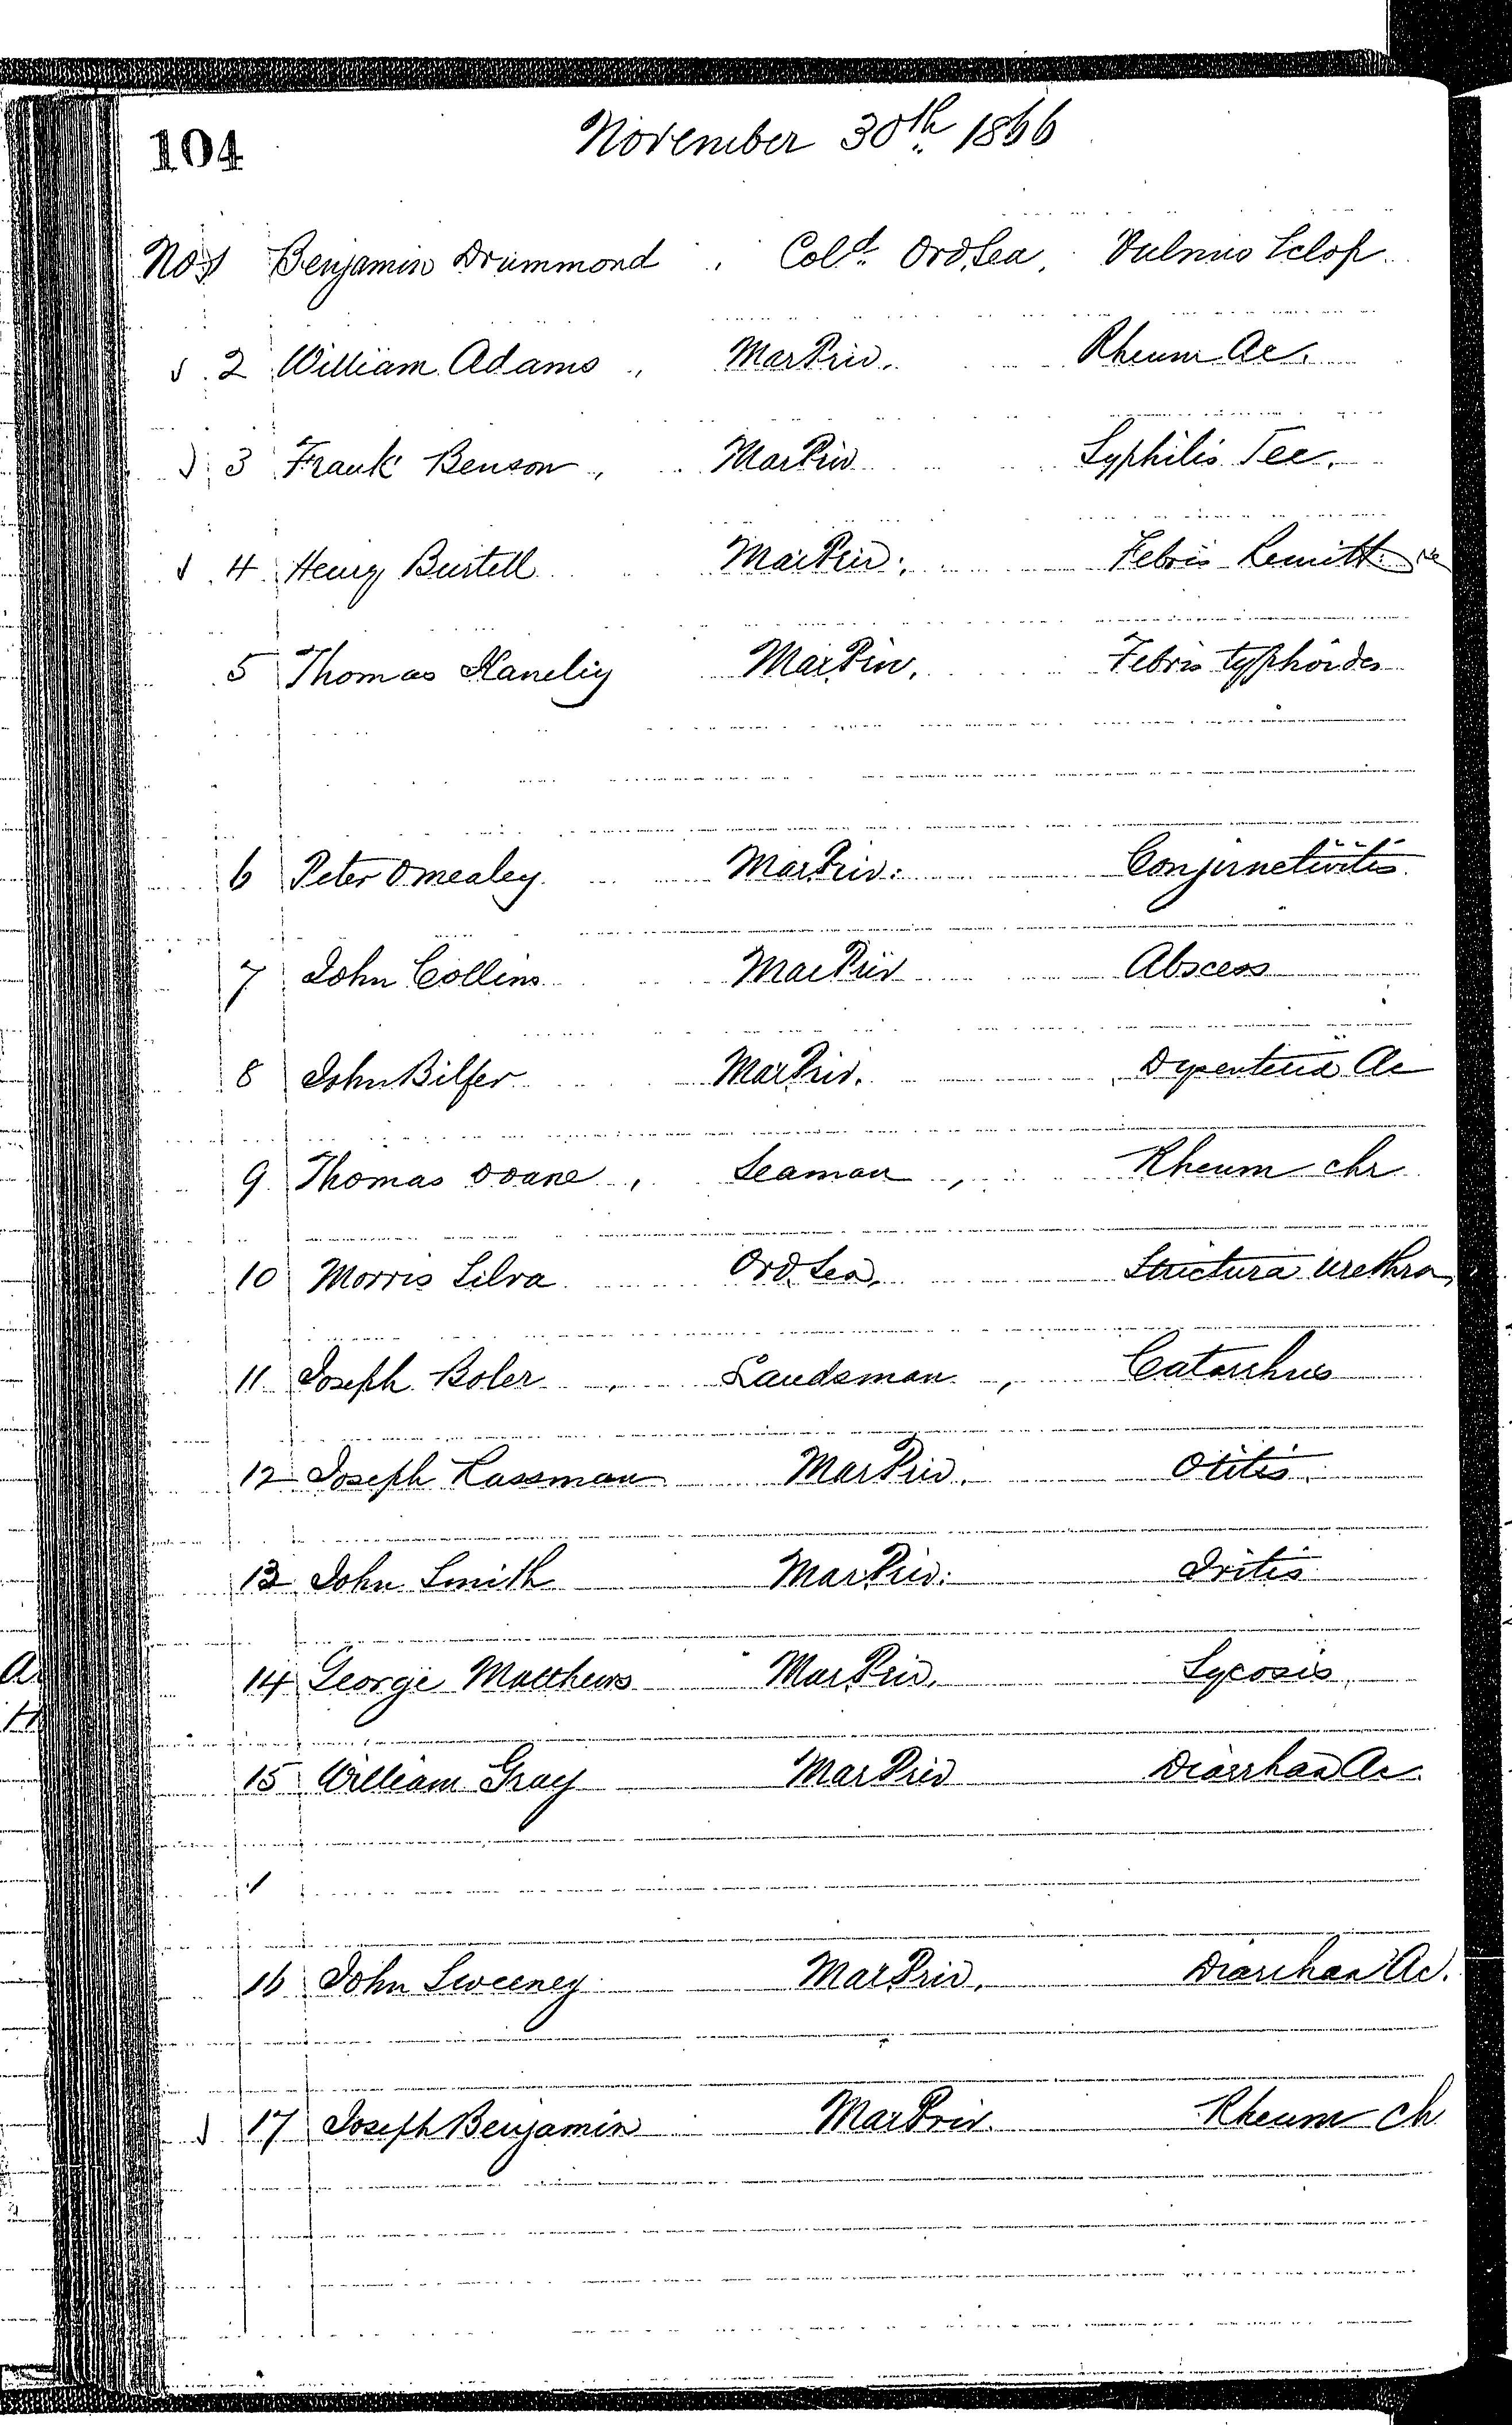 104
November 30th 1866
No 1 Benjamin Drummond, Cold. Ord. Sea, Vulnus Sclop.
2 William Adams, Mar Priv. Rheum Ac.
3 Frank Benson, Mar Priv Syphilis Sec.
4 Henry Burtell Mar Priv. Febris Remitt
5 Thomas Haneliy Mar Priv. Febris typhoides
6 Peter Omealey Mar Priv. Conjunctivitis
7 John Collins Mar Priv Abscess
8 John Bilfer Mar Priv. Dysenteria Ac
9 Thomas Doane, Seaman, Rheum chr
10 Morris Silva Ord. Sea, Strictura Urethra,
11 Joseph Boler, Landsman, Catarrhus
12 Joseph Rassman Mar Priv. Otitis.
13 John Smith Mar Priv. Iritis
14 George Matthews Mar Priv. Sycosis.
15 William Gray Mar Priv Diarrhœa Ac.
16 John Sweeney Mar Priv. Diarrhœa Ac.
17 Joseph Benjamin Mar Priv. Rheum Ch